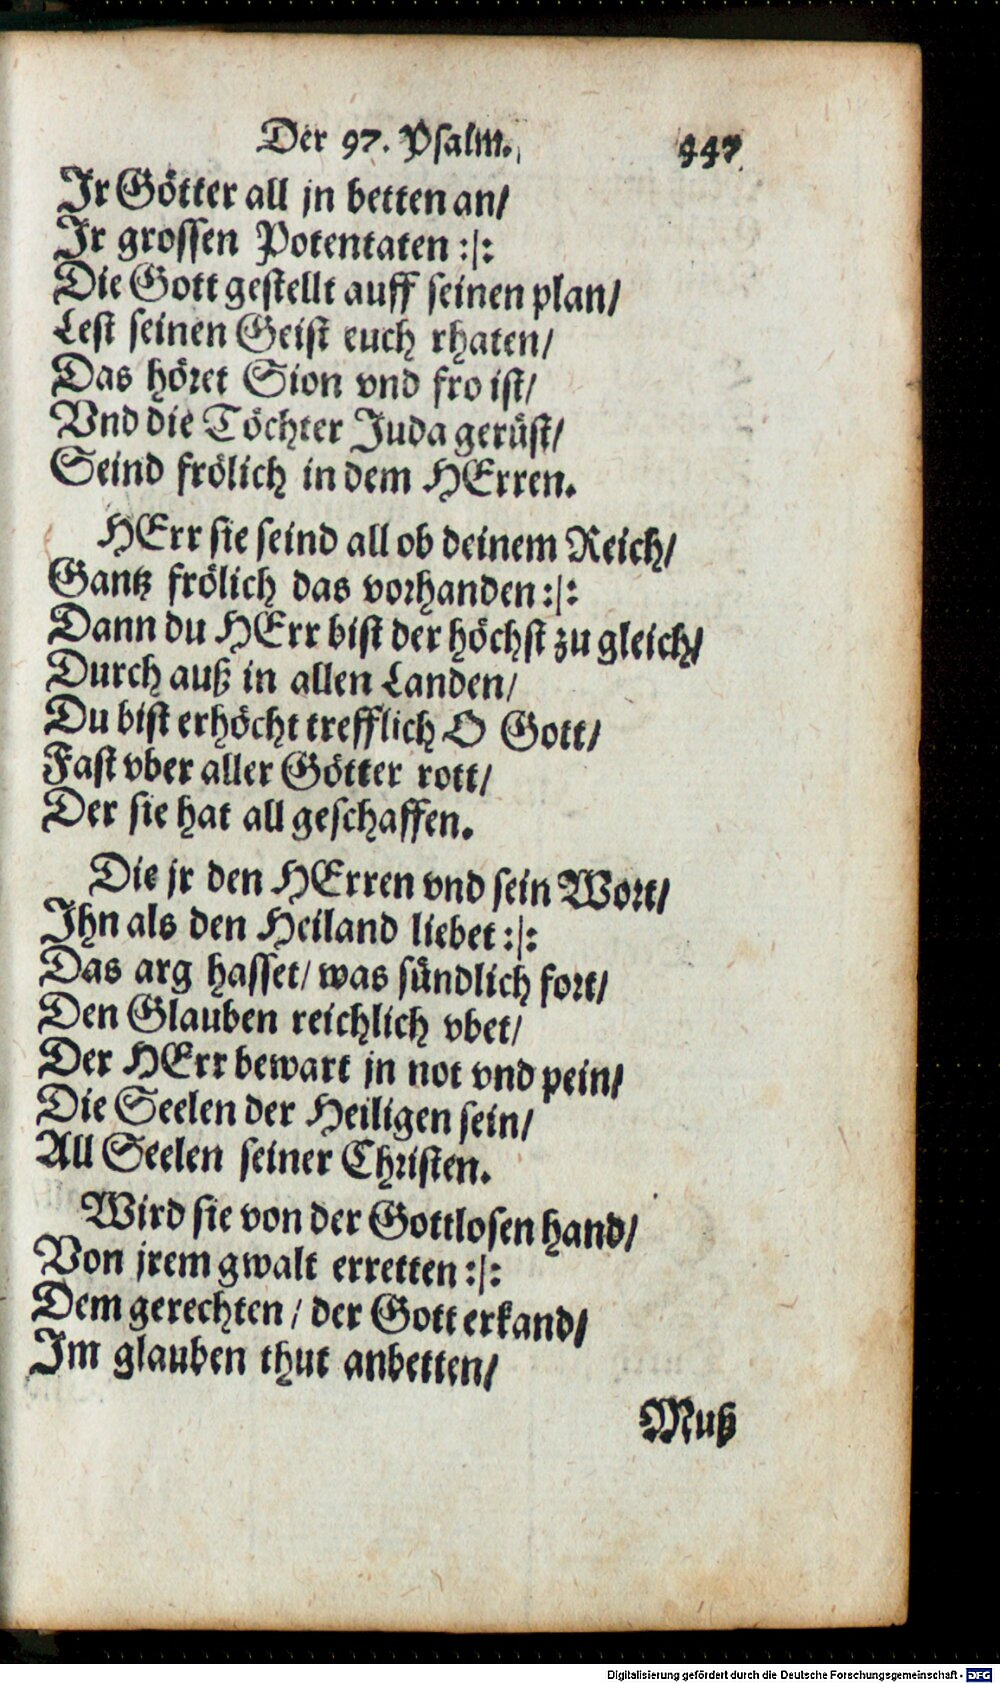 Der 97. Psalm. 447
Ir Götter all jn betten an/
Ir grossen Potentaten :/:
Die Gott gestellt auff seinen plan/
Lest seinen Geist euch rhaten/
Das höret Sion vnd fro ist/
Vnd die Töchter Juda gerüst/
Seind frölich in dem HErren.
HErr sie seind all ob deinem Reich/
Gantz frölich das vorhanden :/:
Dann du HErr bist der höchst zu gleich/
Durch auß in allen Landen/
Du bist erhöcht trefflich O Gott/
Fast vber aller Götter rott/
Der sie hat all geschaffen.
Die jr den HErren vnd sein Wort/
Ihn als den Heiland liebet :/:
Das arg hasset/ was sündlich fort/
Den Glauben reichlich vbet/
Der HErr bewart jn not vnd pein/
Die Seelen der Heiligen sein/
All Seelen seiner Christen.
Wird sie von der Gottlosen hand/
Von jrem gwalt erretten :/:
Dem gerechten / der Gott erkand/
Im glauben thut anbetten/
Muß
Digitalisierung gefördert durch die Deutsche Forschungsgemeinschaft - DFG